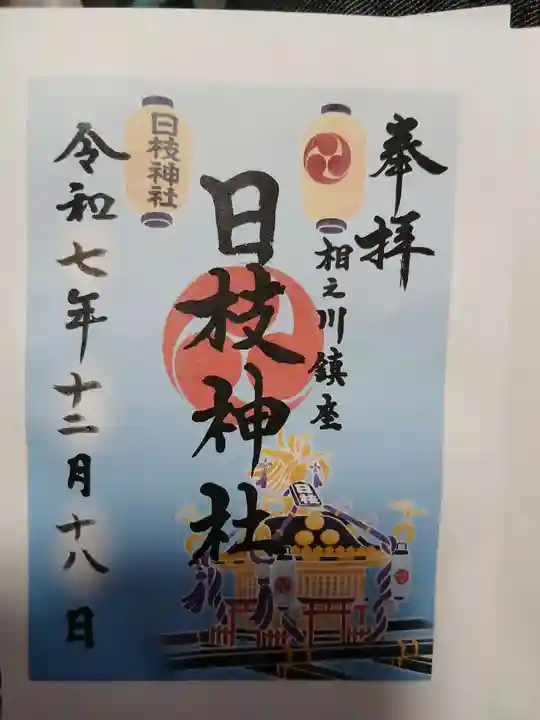 奉拝
相之川鎮座
日枝神社
令和七年十二月十八日
日枝神社
日枝